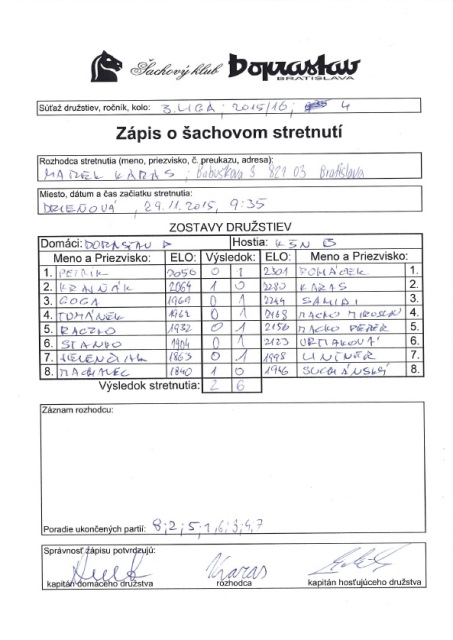 Šachový klub Doprastav
BRATISLAVA
Súťaž družstiev, ročník, kolo: 3. LIGA ; 2015/16 ; 4
Zápis o šachovom stretnutí
Rozhodca stretnutia (meno, priezvisko, č. preukazu, adresa):
MAREK KARAS ; Babuškova 3 821 03 Bratislava
Miesto, dátum a čas začiatku stretnutia:
DRIEŇOVÁ, 29.11.2015, 9:35
ZOSTAVY DRUŽSTIEV
Domáci: DOPRASTAV Hostia: KŠN B
Meno a Priezvisko: ELO: Výsledok: ELO: Meno a Priezvisko:
1. PETRÍK 2050 0 1 2301 1.
2. KRAJŇÁK 2064 1 0 2280 KARAS 2.
3. GOGA 1969 0 1 2244 SAMIDI 3.
4. TOMÁNEK 1962 0 1 2168 MACKO MIROSLAV 4.
5. RACZKO 1932 0 1 2156 MACKO PETER 5.
6. STANKO 1904 0 1 2123 6.
7. 1863 0 1 1998 LINTNER 7.
8. 1840 1 0 1946 SUCHÁNSKÝ 8.
Výsledok stretnutia: 2 6
Záznam rozhodcu:
Poradie ukončených partií: 8;2;5;1,6;3;4,7
Správnosť zápisu potvrdzujú:
Karas
kapitán domáceho družstva rozhodca kapitán hosťujúceho družstva